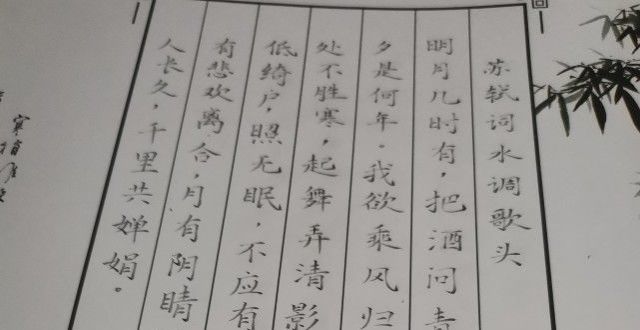 苏轼词水调歌头
明月几时有，把酒问青
夕是何年。我欲乘风归
处不胜寒，起舞弄清影
低绮户，照无眠，不应有
有悲欢离合，月有阴晴
人长久，千里共婵娟。